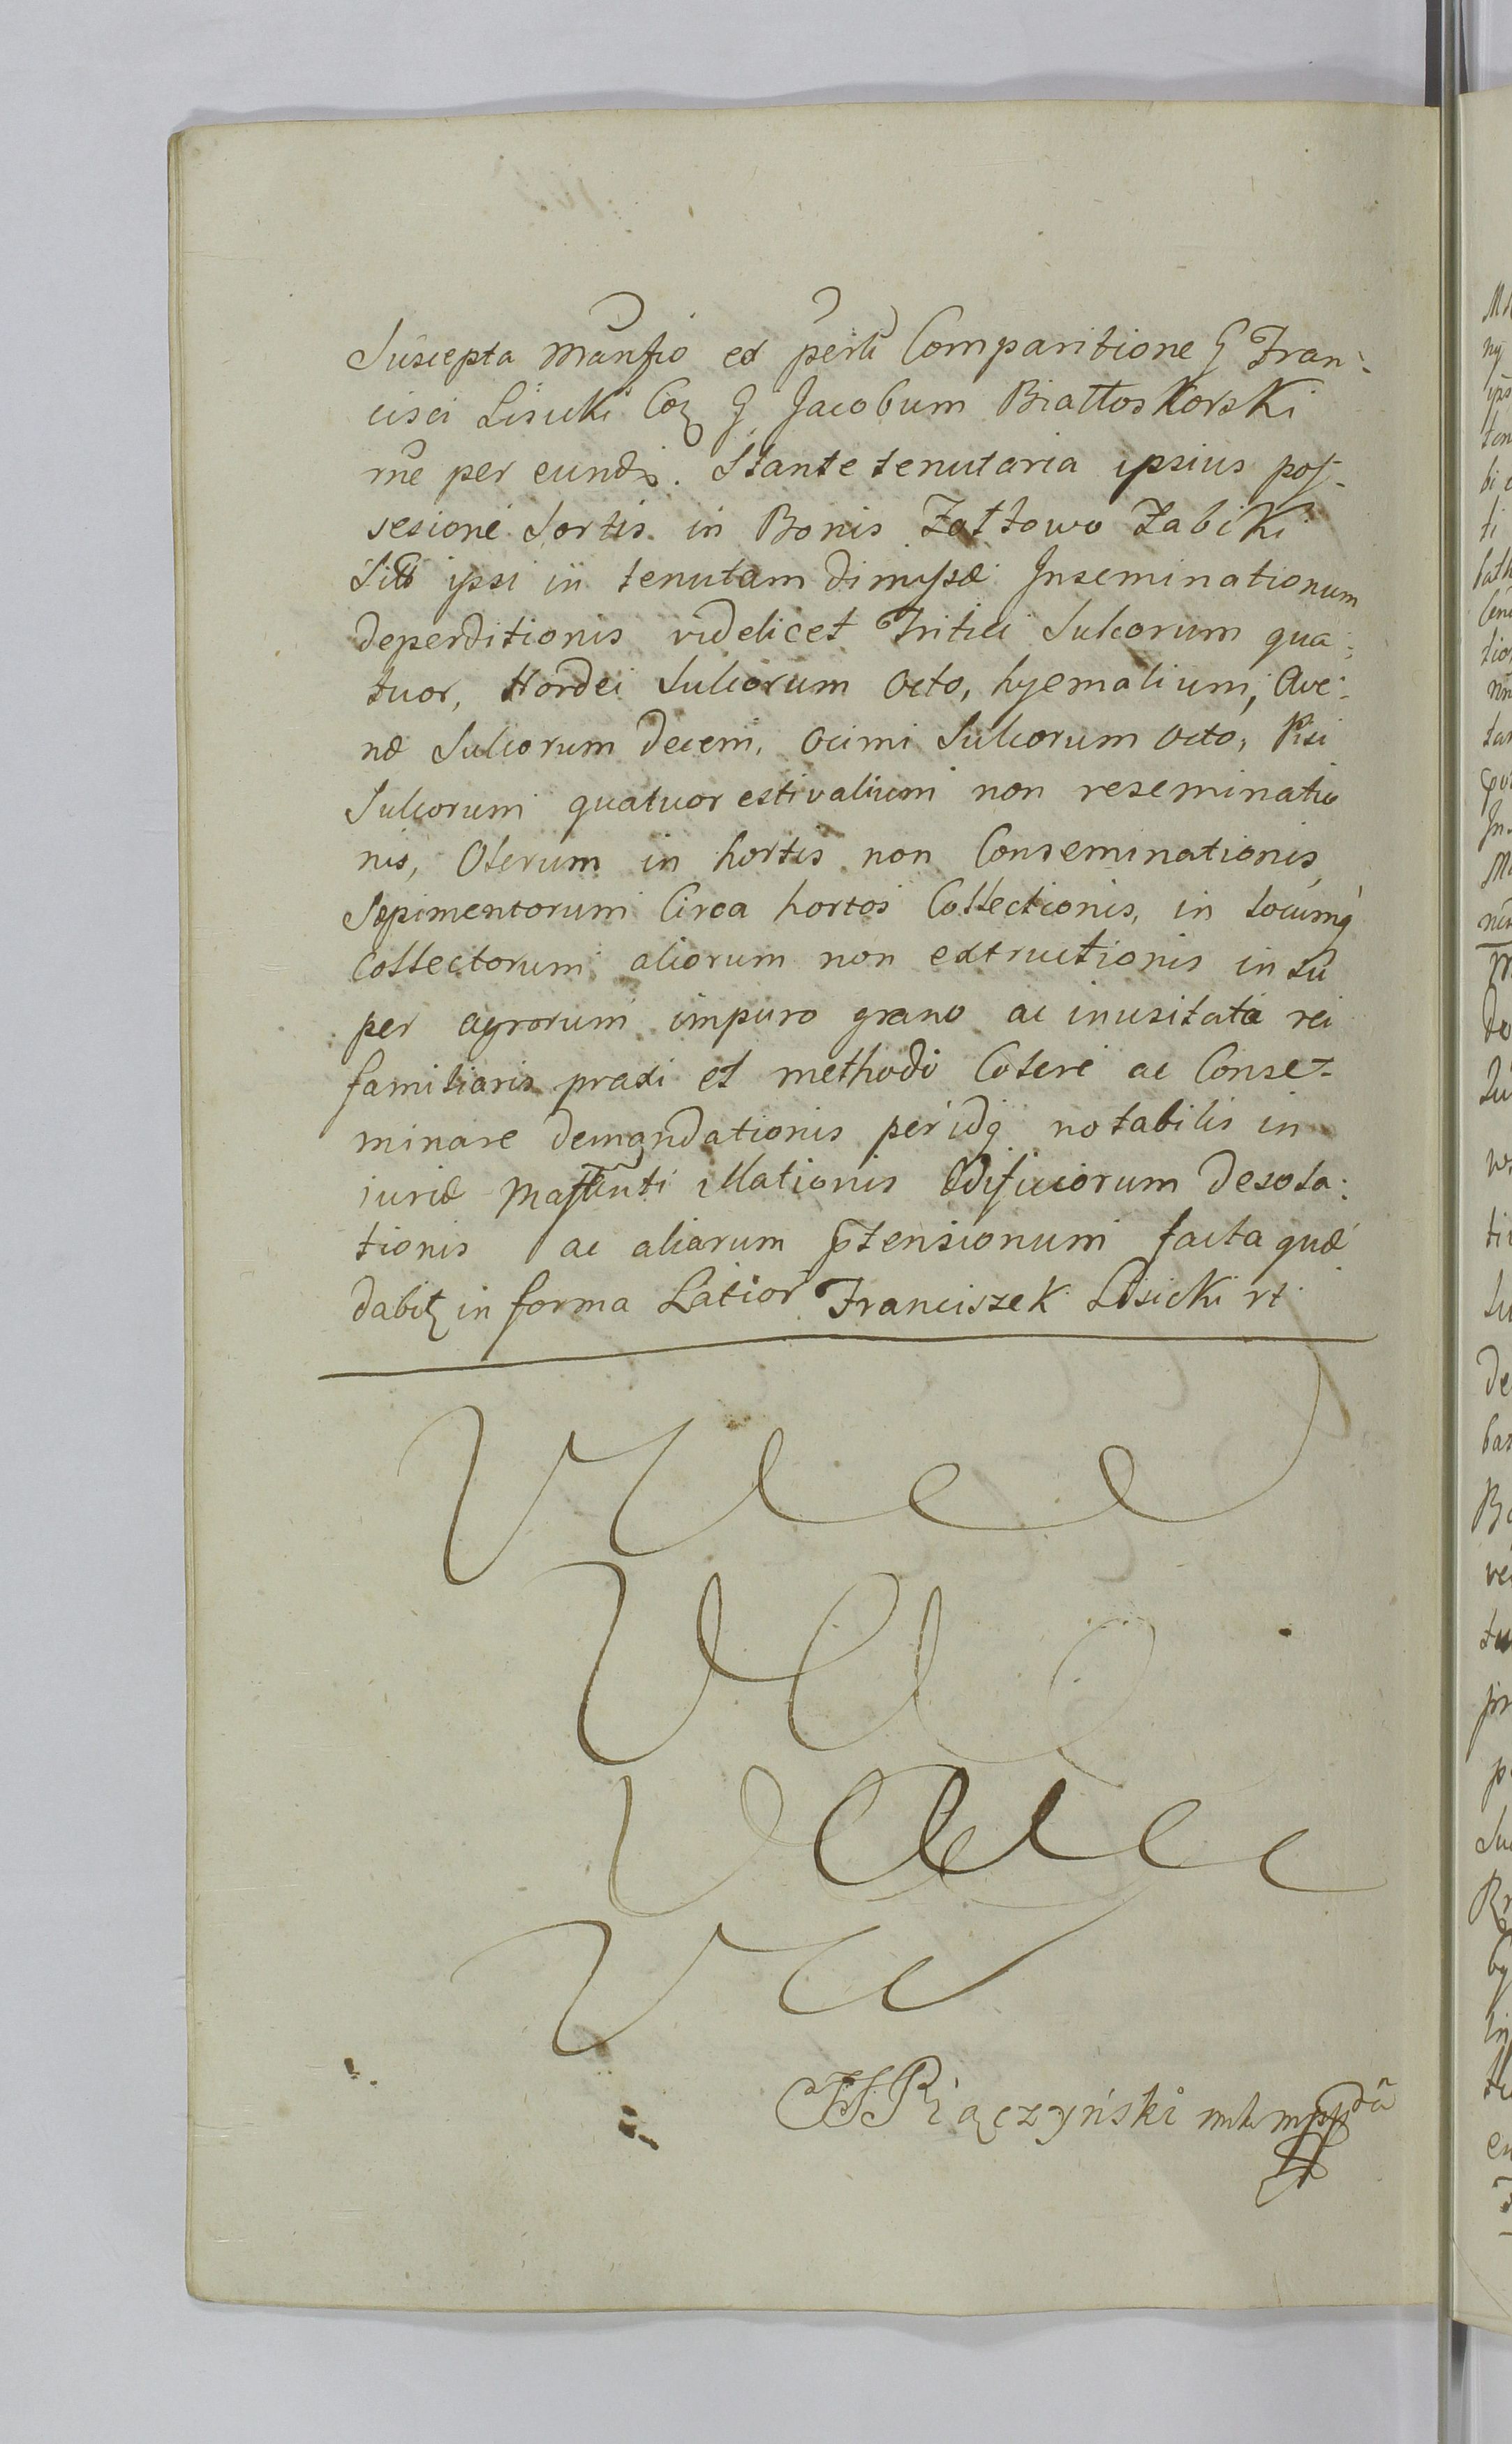 Suscepta Manfio ex perli Comparitione G Fran:
cisci Lisicki Coz G Jacobum Białłoskorski
rne per eundẽ. Stante tenutaria ipsius pos-
sesione Sortis in Bonis Załtowo Zabiki
Sitt ipsi in tenutam dimissæ Inseminationum
deperditionis videlicet Tritici Sulcorum qua:
tuor, Hordei Sulcorum Octo, hyemalium, Ave:
næ Sulcorum decem, Ocimi Sulcorum Octo, Pisi
Sulcorum quatuor estivalium non reseminatio
nis, Olerum in hortis non Conseminationis,
Sæpimentorum Circa hortos Collectionis, in locumq́
Collectorum aliorum non extructionis in su
per agrorum impuro grano ac inusitata rei
familiaris praxi et methodo Colere ac Conse-
minare demandationis per idq notabilis in
iuriæ illationis Ædificiorum Desola:
tionis ac aliarum ptensionum facta quæ
dabitz in forma Latior Franciszek Lisicki rt
Riączyński